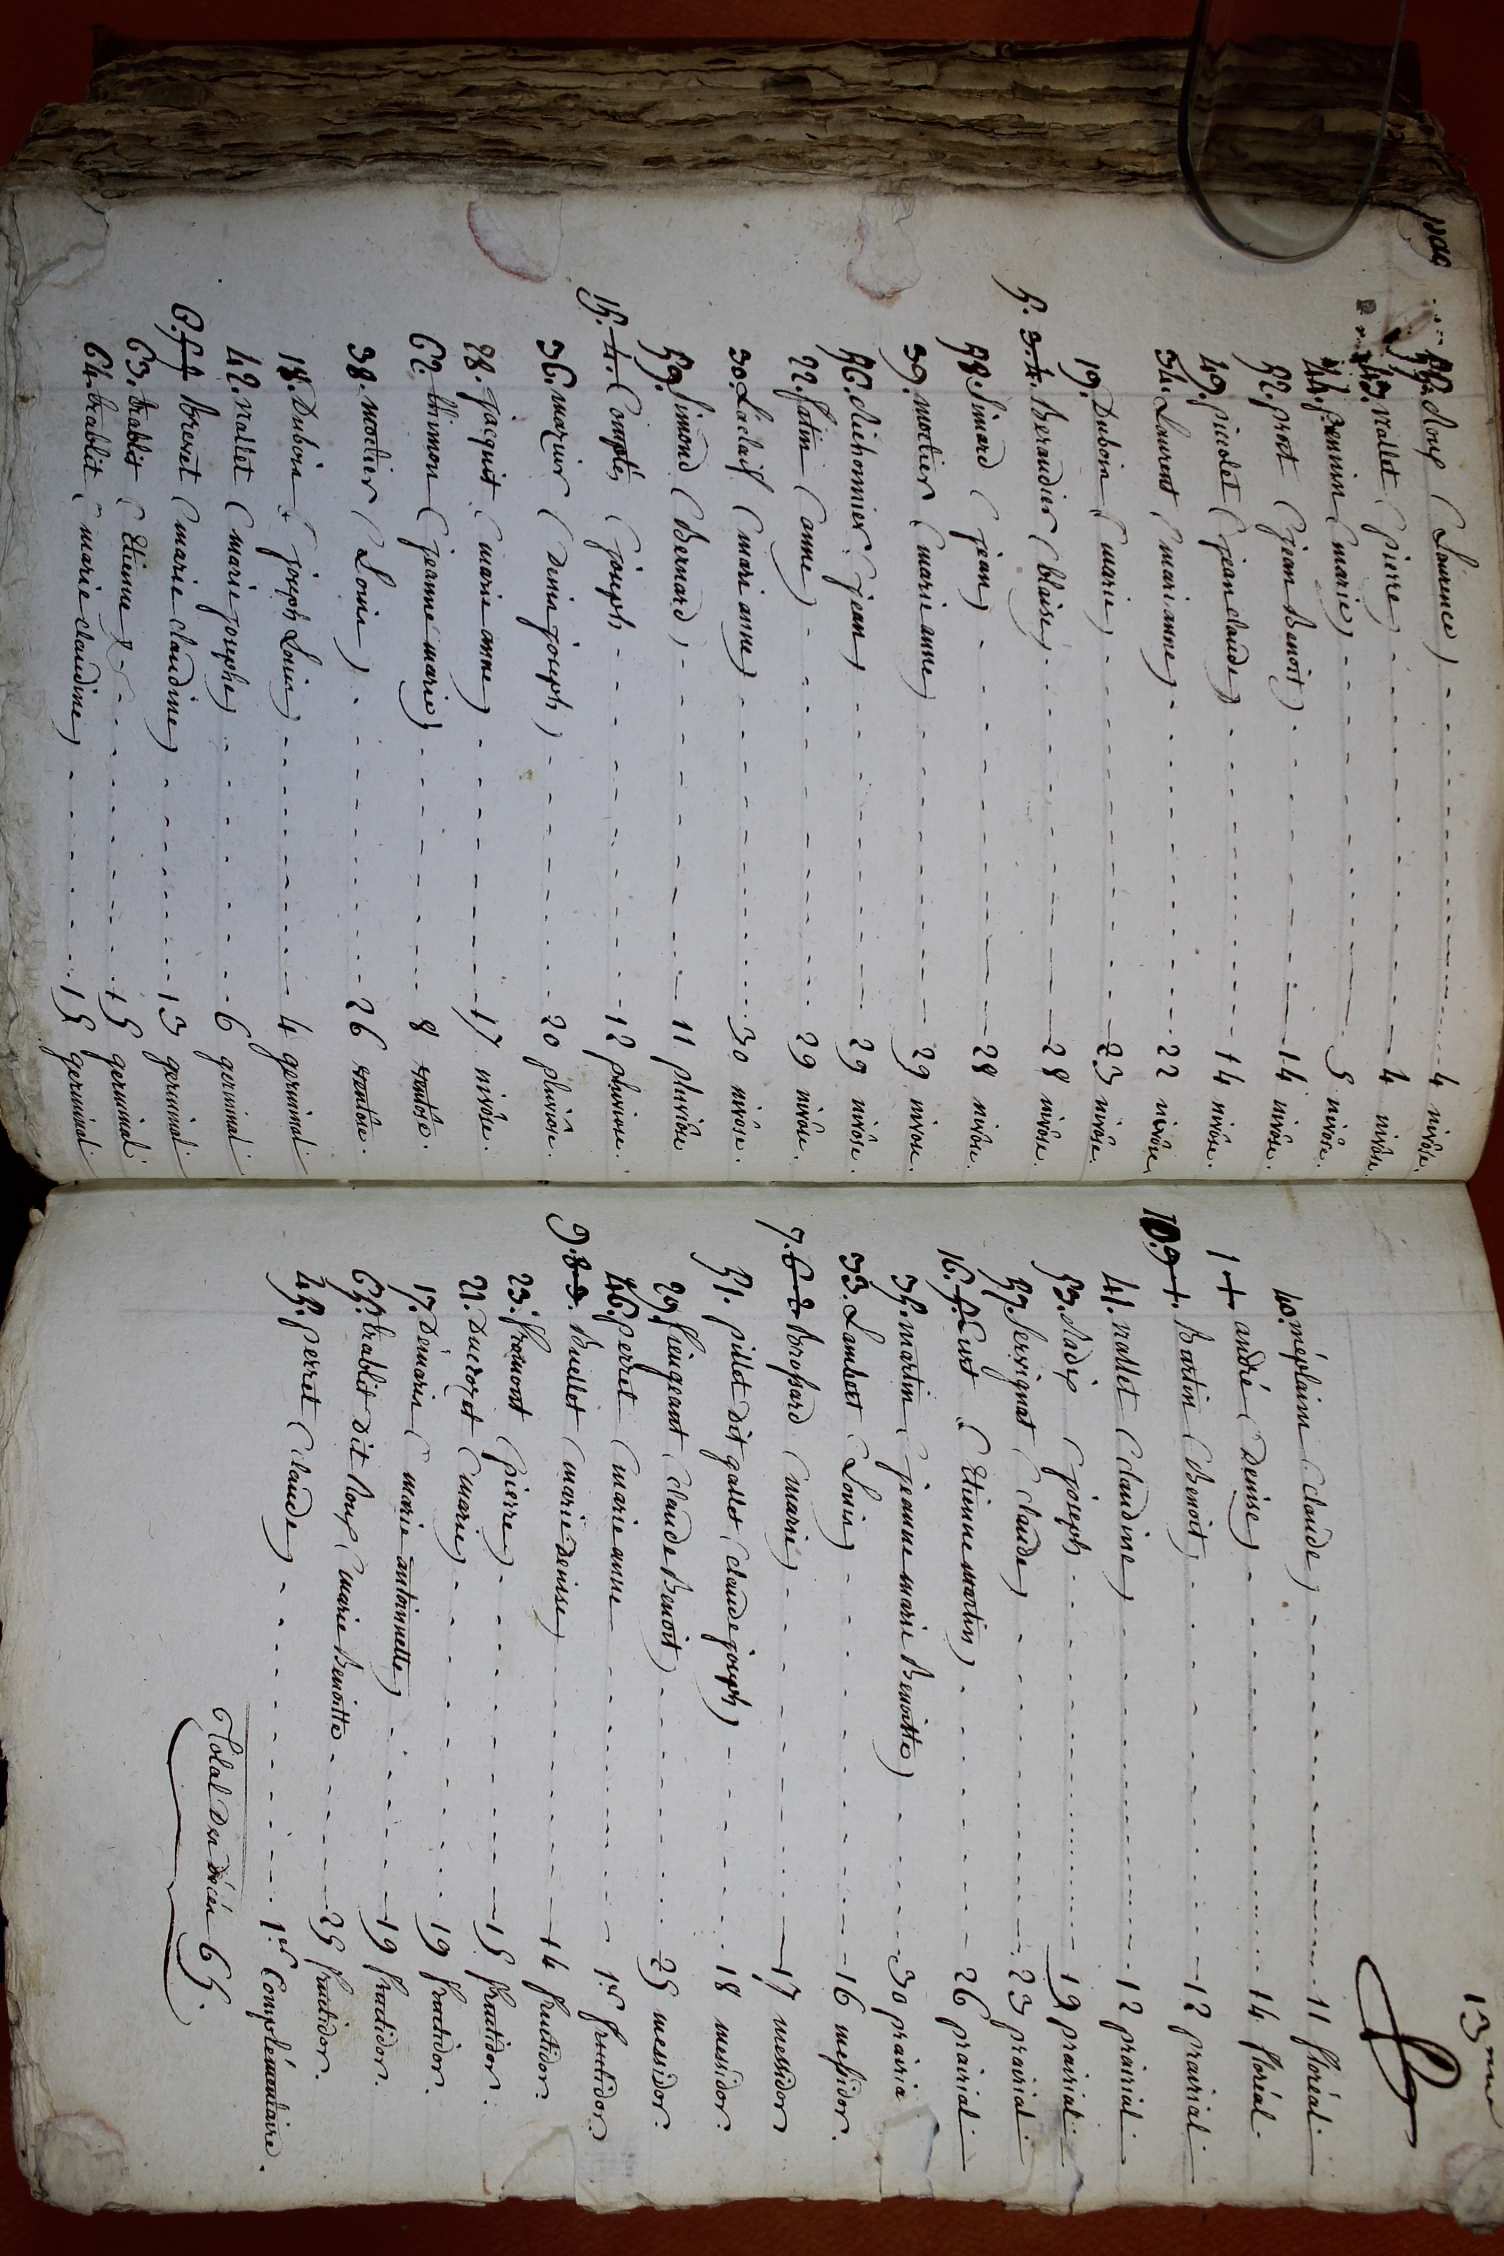 55. Roux (Laurence) 4 nivôse.
43. Mallet (pierre) 4 nivôse
44. pennin (marie) 5 nivôse.
52. prost (jean Benoit) 14 nivôse.
49. picolet (jean claude) 14 nivôse.
34. Laurent (marianne) 22 nivôse
19. Dubois (marie) 23 nivôse.
5. 3.4. Beraudier (blaise) 28 nivôse.
58. Simard (jean) 28 nivôse.
39. mortier (marie anne) 29 nivôse.
56. (jean) 29 nivôse.
22. fatin (anne) 29 nivôse.
30. Laclaif (mari anne) 30 nivôse.
59. Simond (Bernard) 11 pluviôse
15. 4. Comptés (joseph 12 pluviose.
36. marjur (Denis joseph) 20 pluviôse.
28. jacquit (marie anne) 17 nivôse.
62. thimon (jeanne marie) 8 ventôse.
38. mortier (Louis) 26 ventôse.
18. Dubois (joseph Louis) 4 germinal.
42. Mallet (marie josephe) 6 germinal.
6. 5 Brevet (marie claudine) 13 germinal.
63. trablit (Etienne) 15 germinal.
64. trablit (marie claudine) 15 germinal.
13me
40. méplaim (claude) 11 floréal.
1 + andré (Denise) 14 floréal.
10. 9 +. Bartin (Benoit) 12 prairial.
41. mallet (claudine) 12 prairial.
53. Radix (joseph 19 prairial.
57. Servignat (claude) 23 prairial.
16. 5. Curt (Etienne martin) 26 prairial.
35. martin (jeanne marie Benoitte) 30 prairia
33. Lambert (Louis) 16 messidor.
7. 6 2 Brossard (marie) 17 messidor
51. pillot dit gallet (claude joseph) 18 messidor.
29. jeugeant (claude Benoit) 25 messidor.
46. perret (marie anne 1er fructidor.
9. 8 3. Buellet (marie Denise) 14 fructidor.
23. framont (pierre) 15 fructidor.
21. Ducrozet (marie) 19 fructidor.
17. Demarin (marie antoinette) 19 fructidor.
65. trablit dit Roux (marie Benoitte 25 fructidor.
45. perret (claude) 1er Complémentaire.
Total Des décés 65.